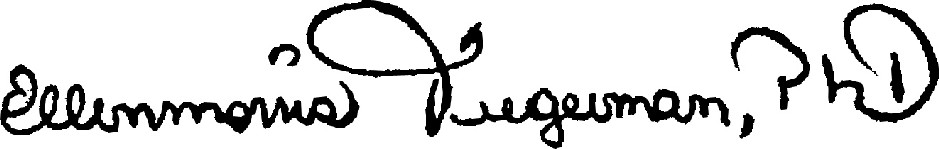 Ellenmorris Tiegerman, PhD